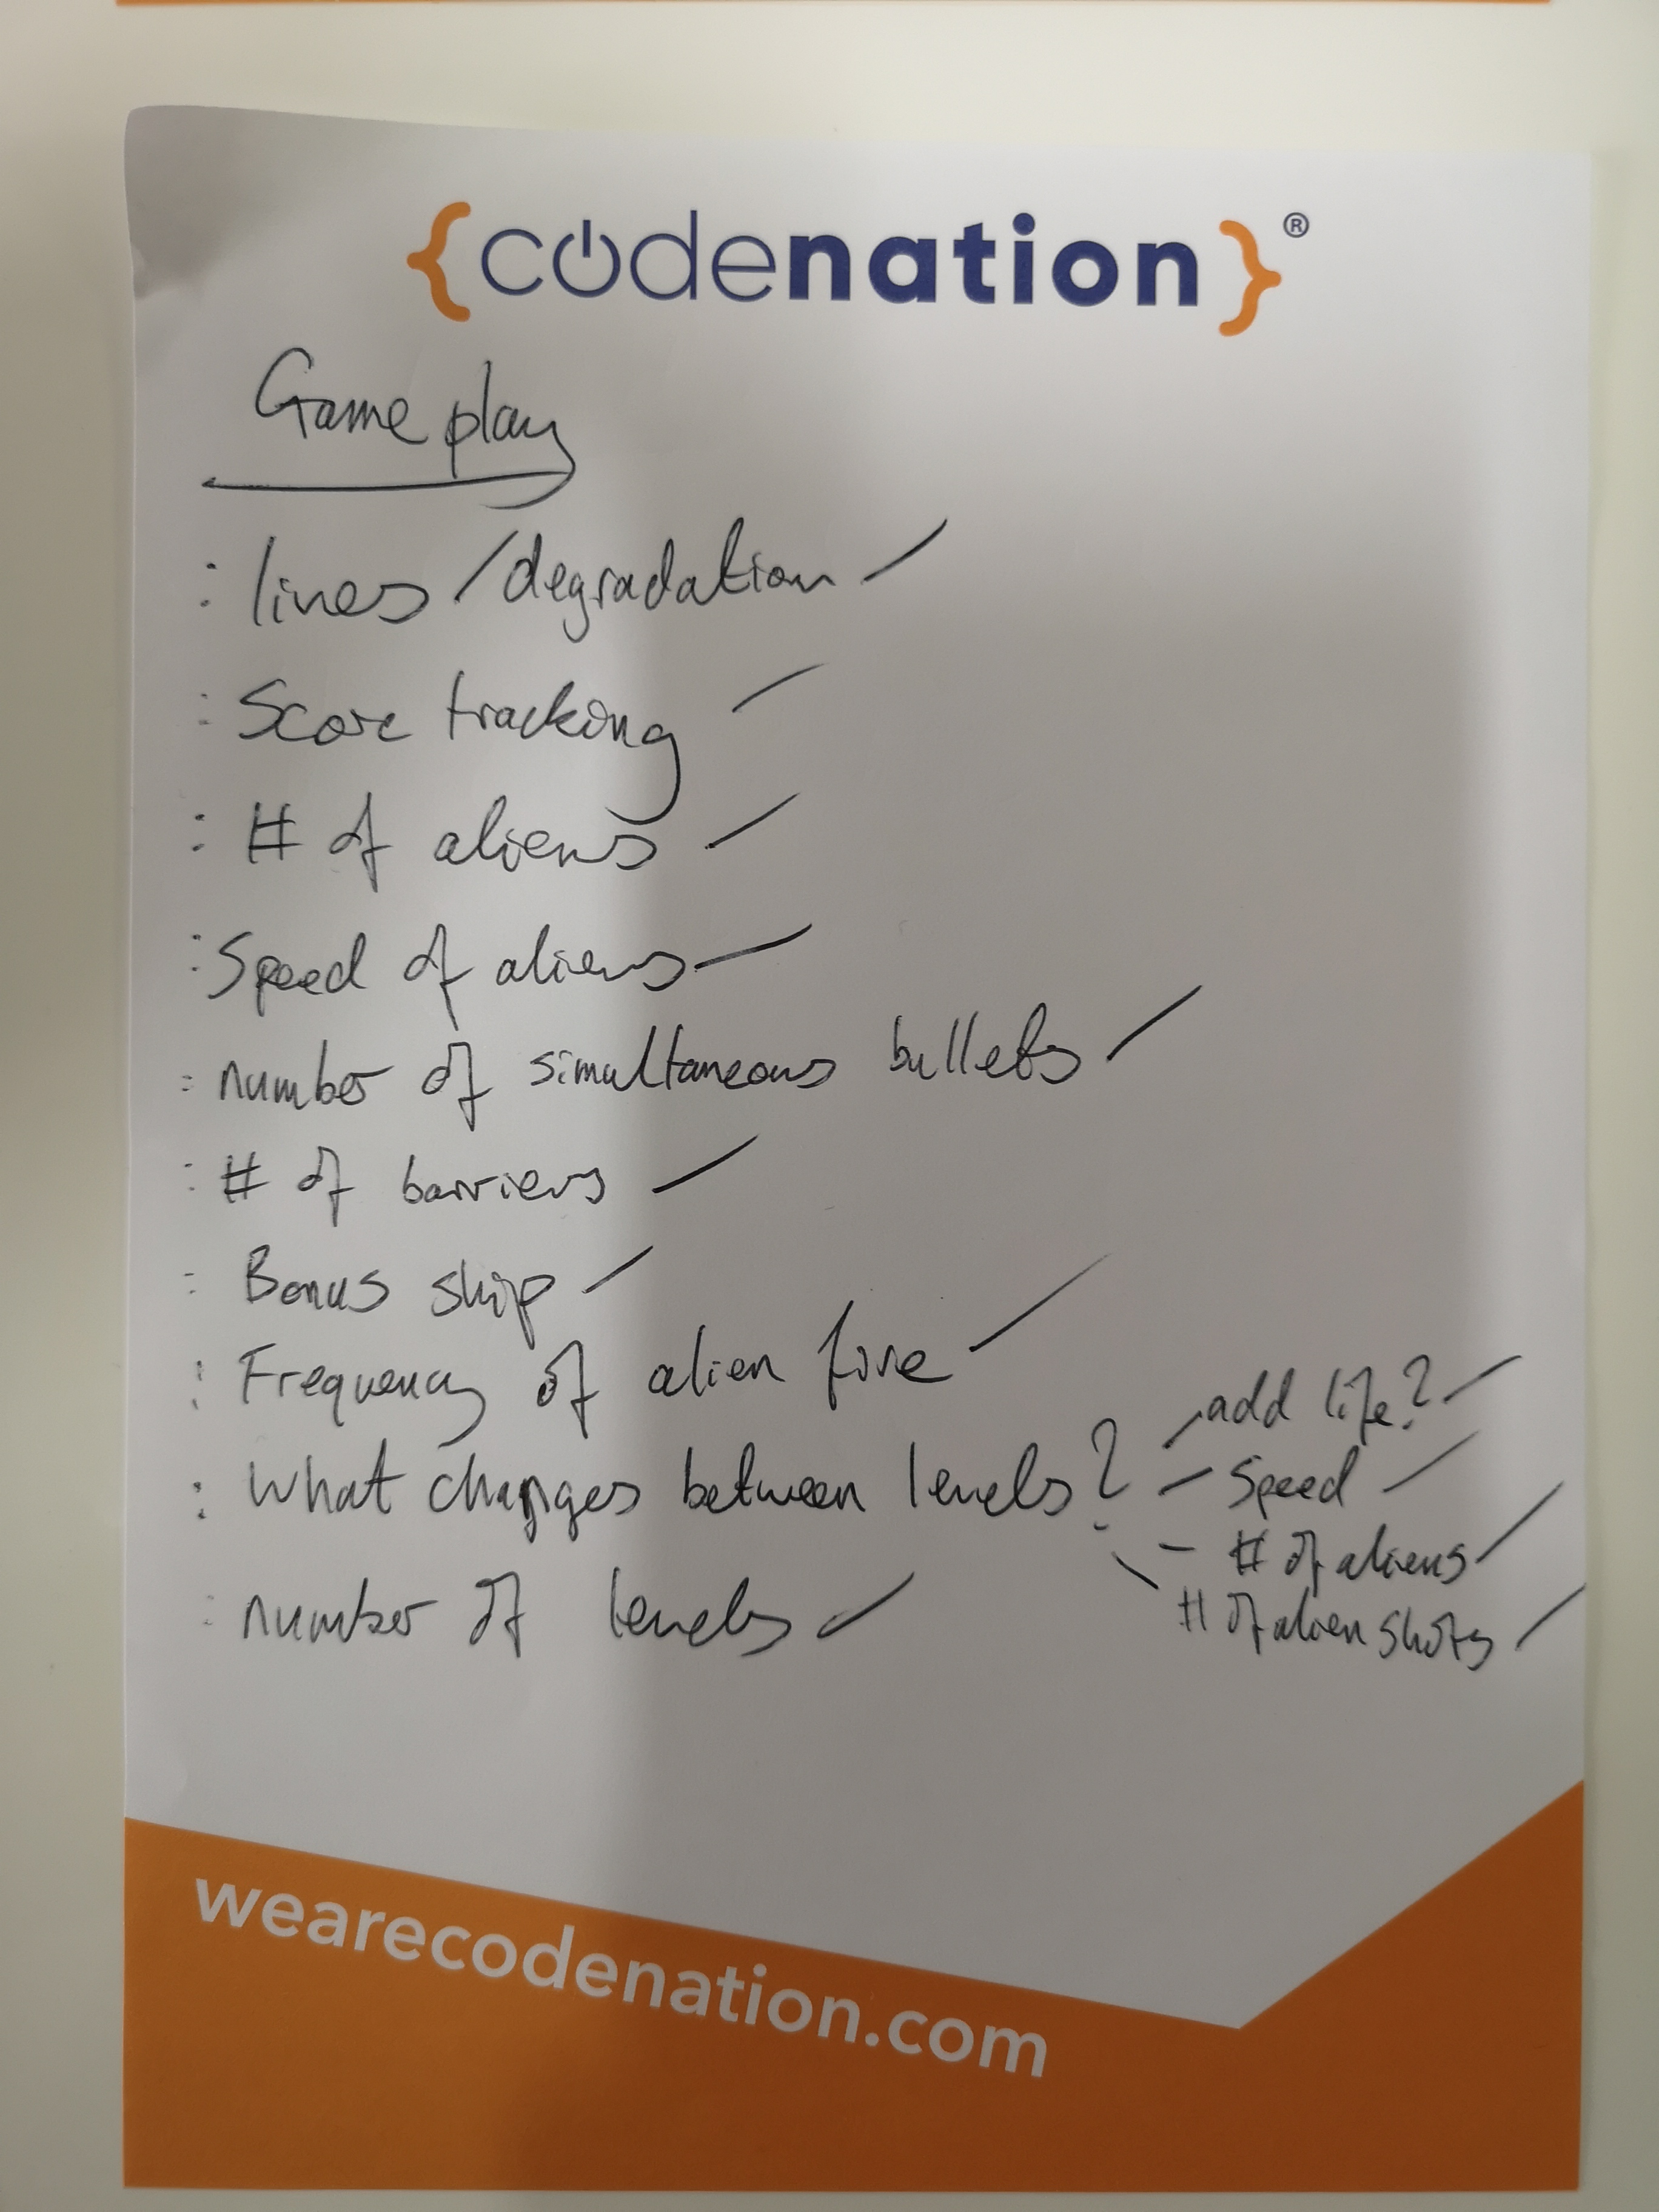 {codenation}®
Game play
: lines / degradation
: Score tracking
: # of aliens
: Speed of aliens
: number of simultaneous bullets
: # of barriers
: Bonus ship
: Frequency of alien fire
: What changes between levels?
- add life?
- Speed
- # of aliens
# of alien shots
: number of levels
wearecodenation.com